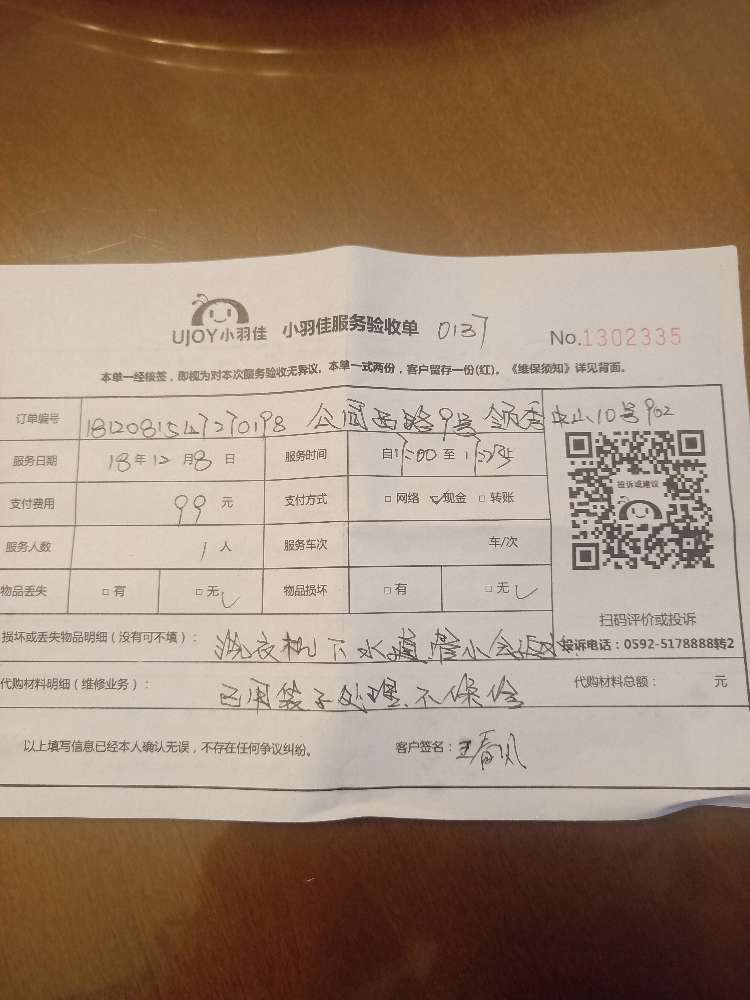 UJOY小羽佳 小羽佳服务验收单 0137 No.1302335
本单一经核签，即视为对本次服务验收无异议，本单一式两份，客户留存一份(红)。《维保须知》详见背面。
订单编号 公园西路9号 领秀中山10号902
服务日期 18年12月8日 服务时间 自 :00至
支付费用 99元 支付方式 □网络 ✓现金 □转账
服务人数 1人 服务车次 车/次
物品丢失 □有 □无✓ 物品损坏 □有 □无✓
投诉或建议
扫码评价或投诉
损坏或丢失物品明细（没有可不填）： 洗衣机下水道管小会 投诉电话：0592-5178888转2
代购材料明细（维修业务）： 已用袋子处理、不保修 代购材料总额： 元
以上填写信息已经本人确认无误，不存在任何争议纠纷。 客户签名：王春风